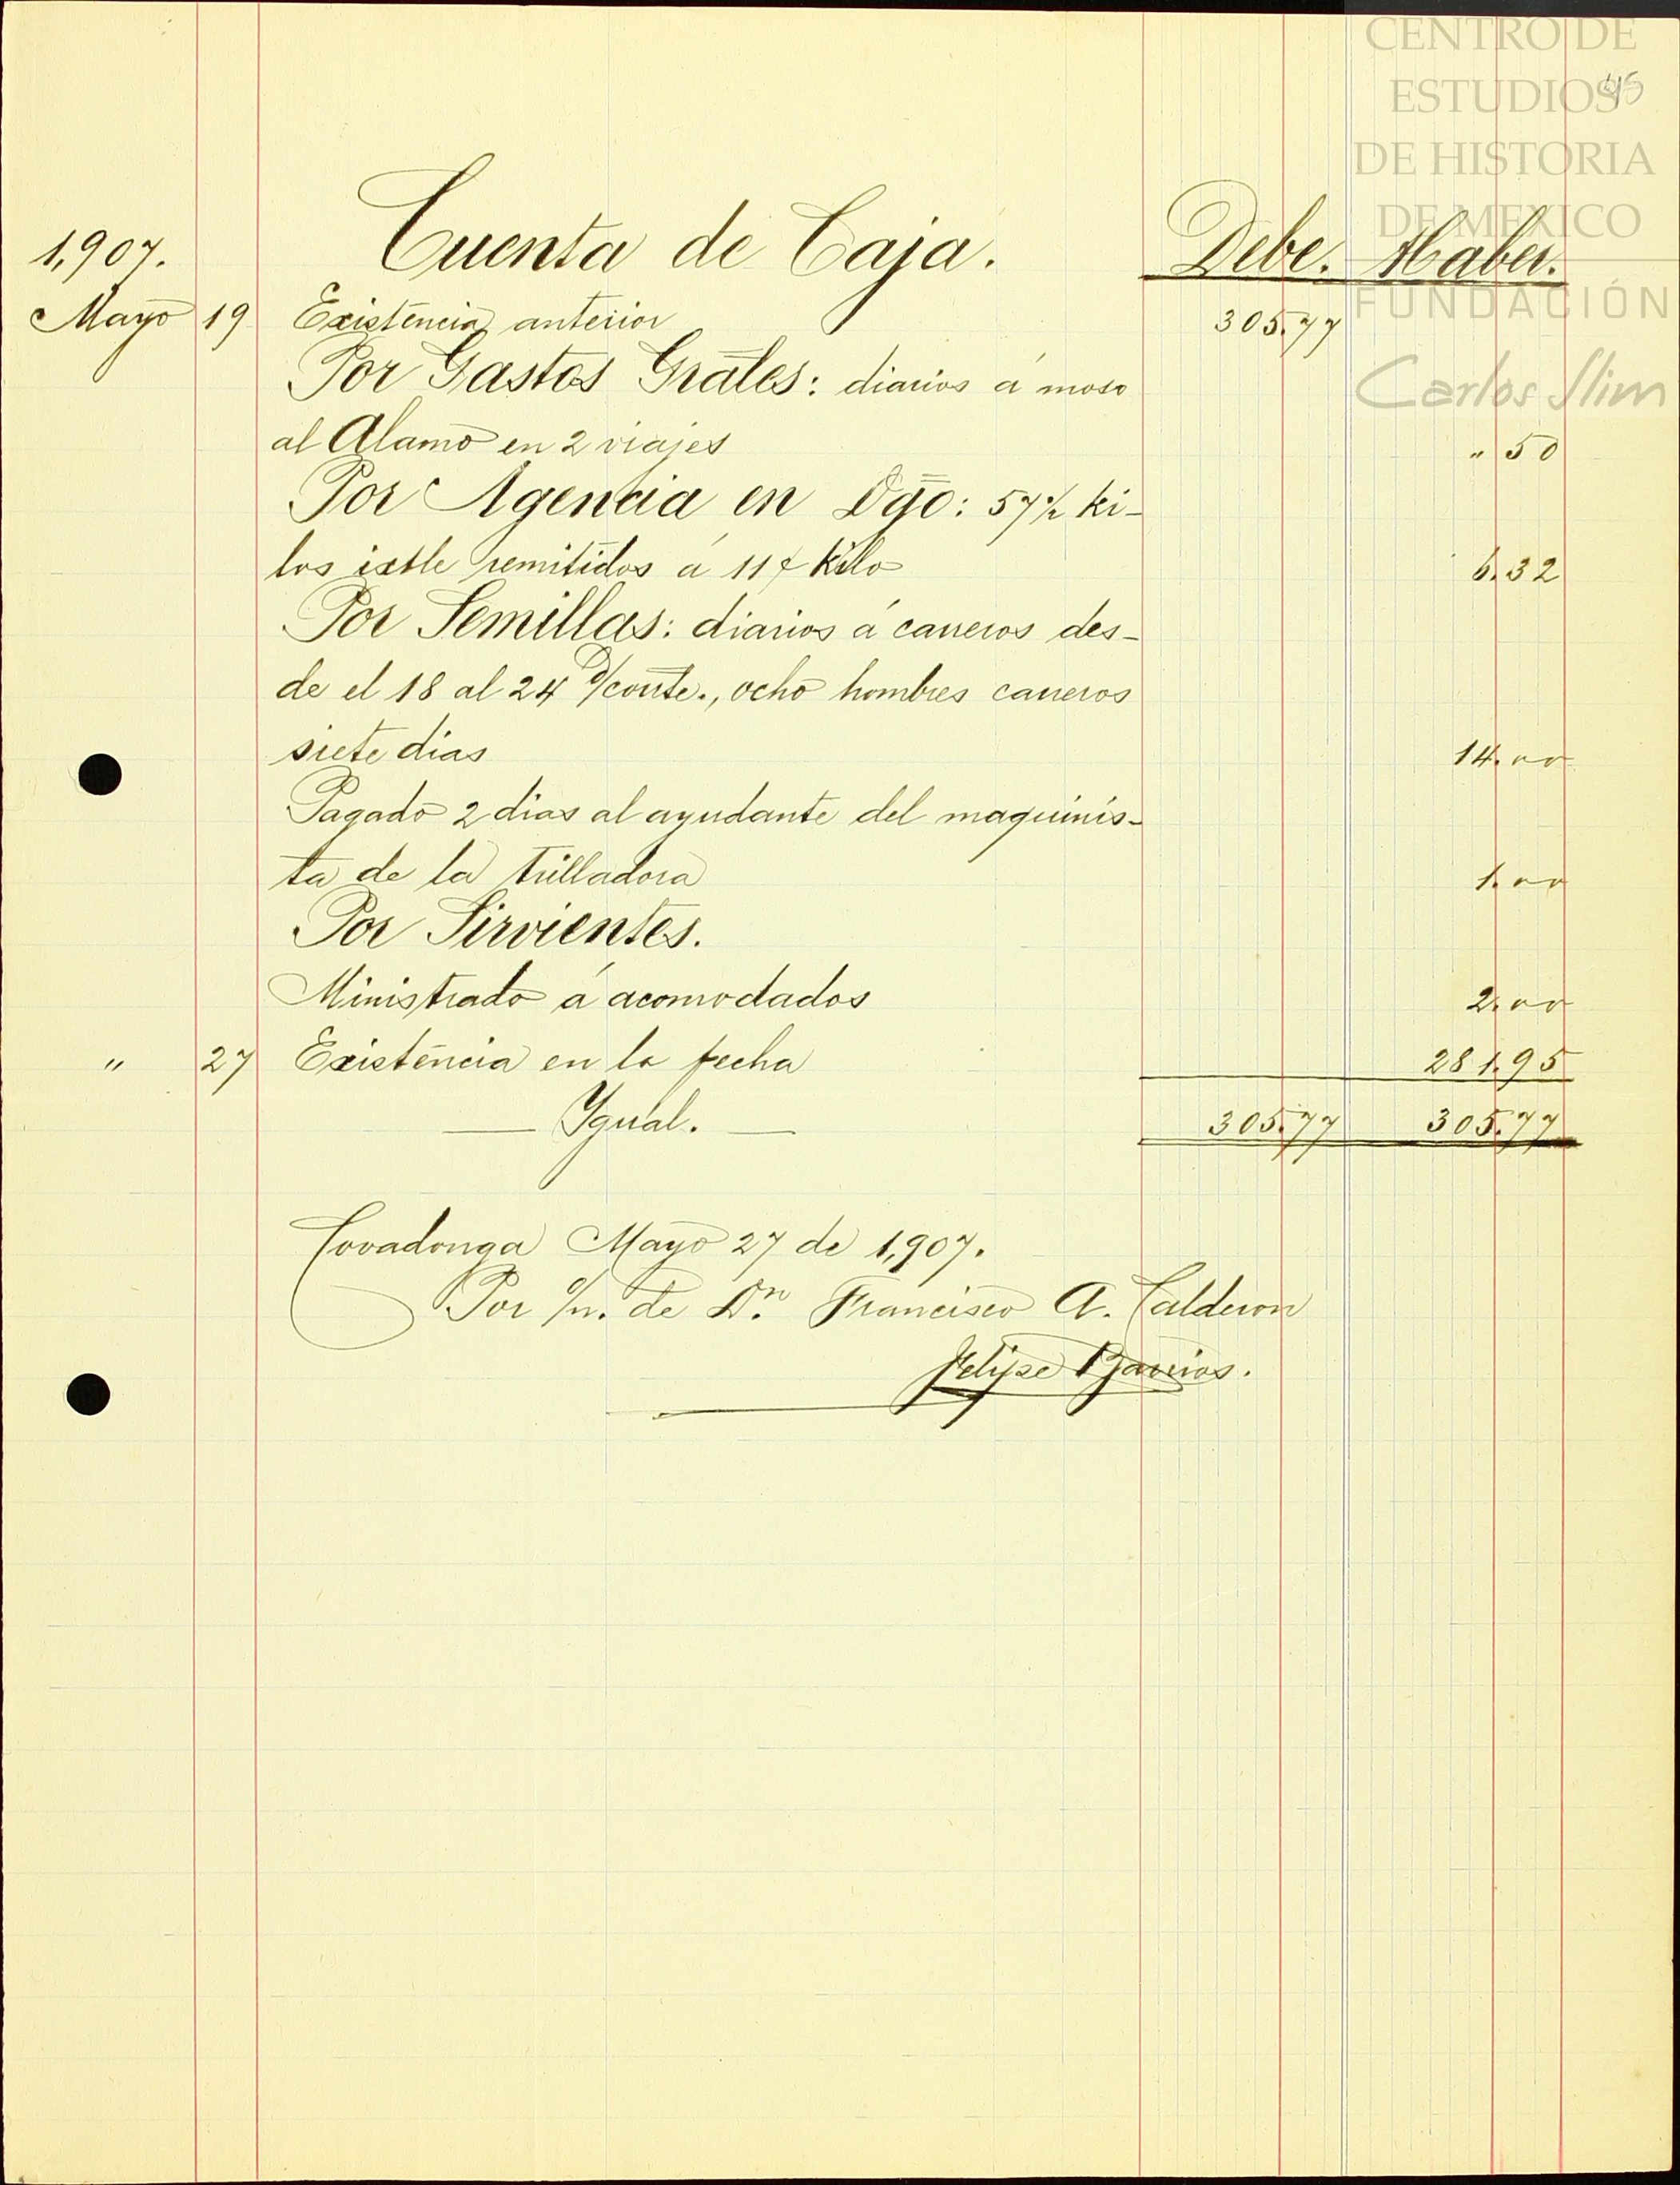 CENTRO DE
ESTUDIOS
45
DE HISTORIA
DE MEXICO
FUNDACIÓN
Carlos Slim
1,907. Cuenta de Caja. Debe. Haber.
Mayo 19 Existencia anterior 305.77
Por Gastos Grales: diarios á moso
al Alamo en 2 viajes " 50
Por Agencia en Dgo: 57½ ki-
los ixtle remitidos á 11¢ Kilo 6.32
Por Semillas: diarios á carreros des-
de el 18 al 24 d/corrte., ocho hombres carreros
siete dias 14.00
Pagado 2 dias al ayudante del maquinis-
ta de la trilladora 1.00
Por Sirvientes.
Ministrado á acomodados 2.00
" 27 Existencia en la fecha 281.95
— Ygual. — 305.77 305.77
Covadonga Mayo 27 de 1,907.
Por o/n. de Dn. Francisco A. Calderon
Felipe Barrios.